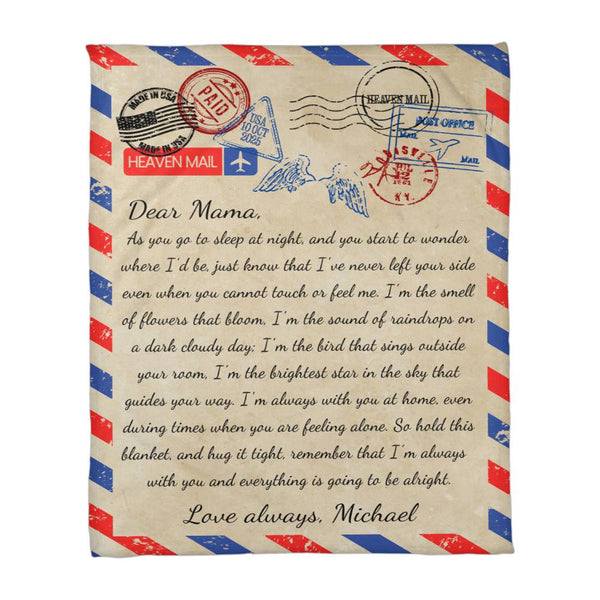 MADE IN USA
MADE IN USA
PAID
USA
10 OCT
2025
HEAVEN MAIL
POST OFFICE
Mail
Mail
HEAVEN MAIL
KY.
Dear Mama,
As you go to sleep at night, and you start to wonder
where I'd be, just know that I've never left your side
even when you cannot touch or feel me. I'm the smell
of flowers that bloom, I'm the sound of raindrops on
a dark cloudy day; I'm the bird that sings outside
your room, I'm the brightest star in the sky that
guides your way. I'm always with you at home, even
during times when you are feeling alone. So hold this
blanket, and hug it tight, remember that I'm always
with you and everything is going to be alright.
Love always, Michael